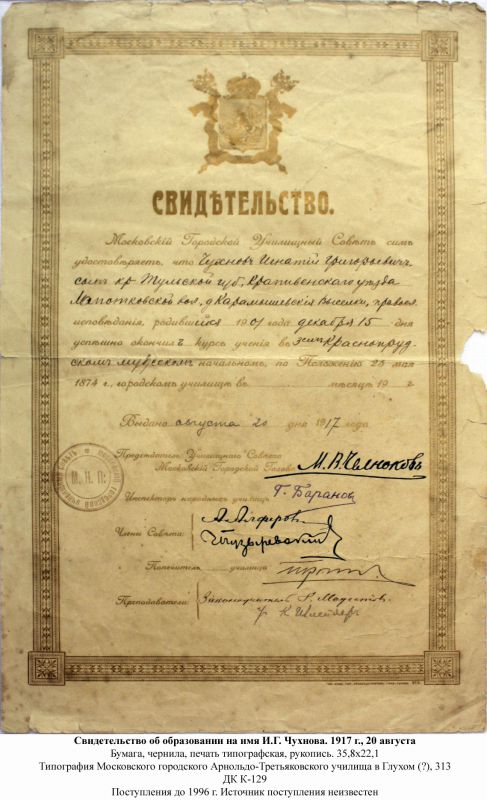 СВИДѢТЕЛЬСТВО.
Московскій Городской Училищный Совѣтъ симъ
удостовѣряетъ, что Чухновъ Игнатій Григорьевичъ
сынъ кр Тульской губ, Крапивенскаго уѣзда
вол, д Карамышевскія Выселки, правосл.
исповѣданія, родившійся 1901 года декабря 15 дня
успѣшно окончилъ курсъ ученія въ 3емъ Краснопруд-
скомъ мужскомъ начальномъ, по Положенію 25 мая
1874 г., городскомъ училищѣ въ мѣсяцѣ 19 г
Выдано августа 20 дня 1917 года
Предсѣдатель Училищнаго Совѣта
Московскій Городской Голова М.В.Челноковъ
М. Н. П.
Инспекторъ народныхъ училищъ Г. Барановъ
Члены Совѣта: А. Алферов
Попечитель училища
Преподаватели: Законоучитель
Свидетельство об образовании на имя И.Г. Чухнова. 1917 г., 20 августа
Бумага, чернила, печать типографская, рукопись. 35,8х22,1
Типография Московского городского Арнольдо-Третьяковского училища в Глухом (?), 313
ДК К-129
Поступления до 1996 г. Источник поступления неизвестен